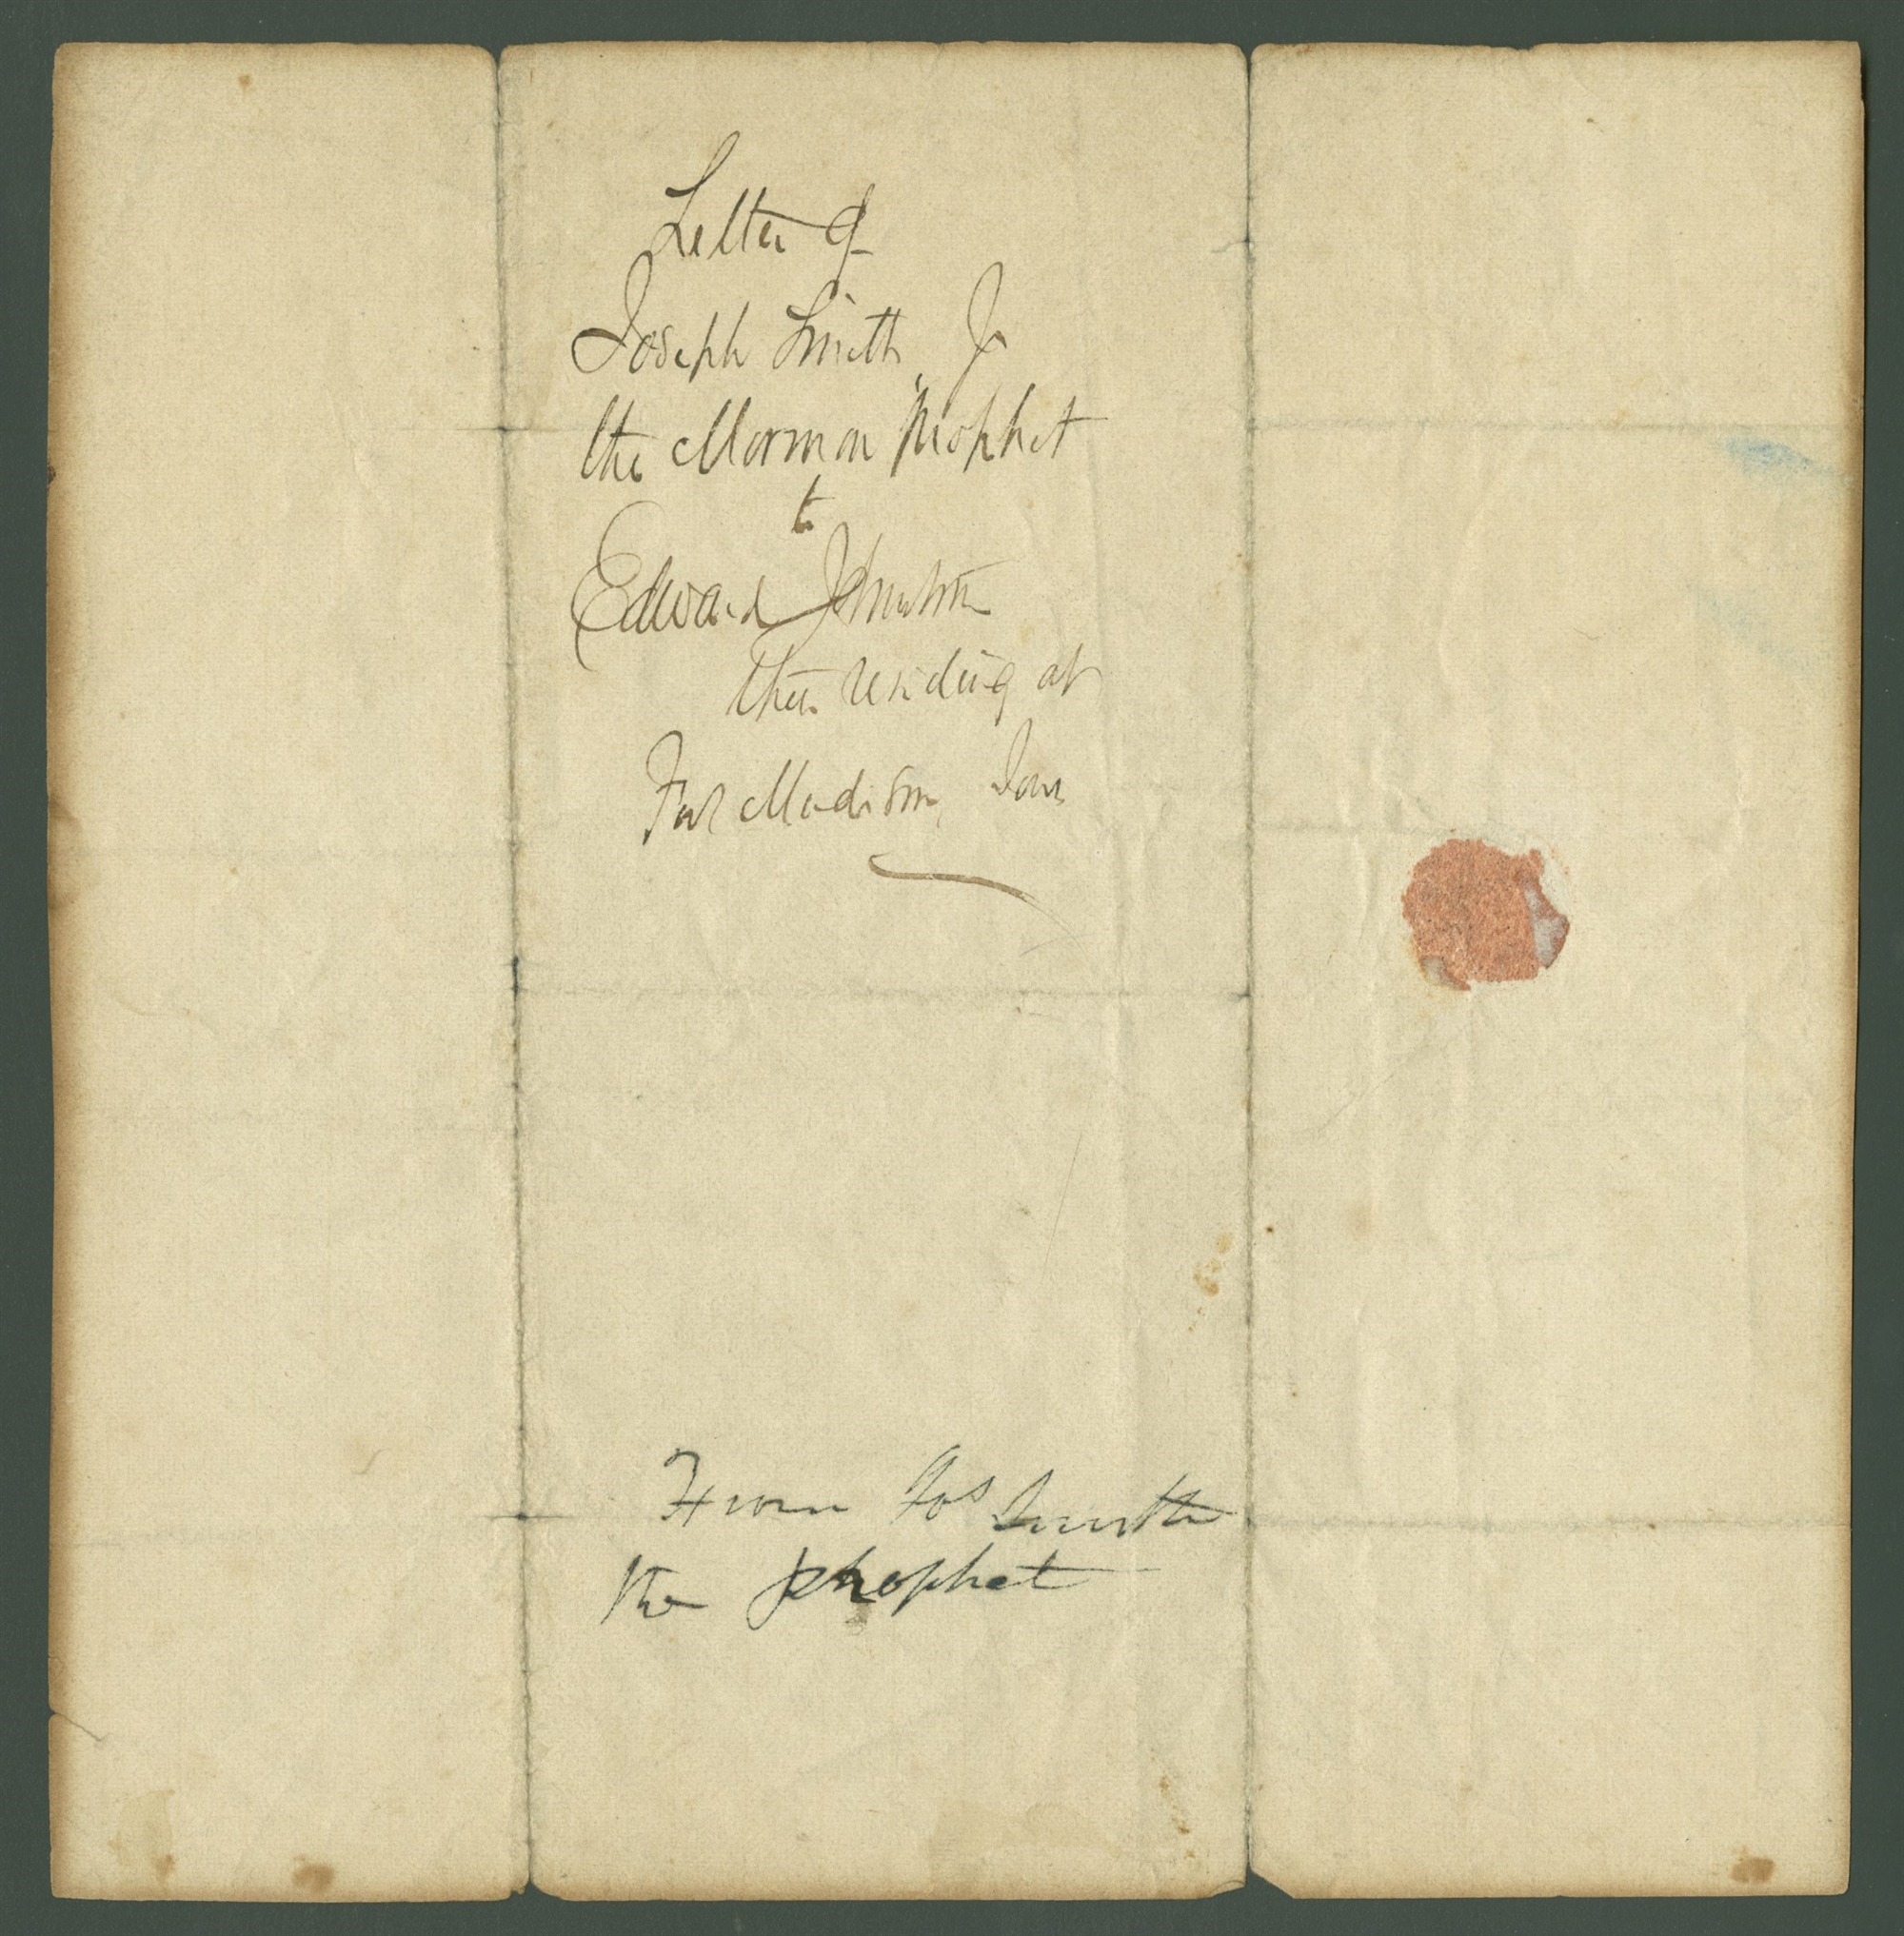 Letter of
Joseph Smith, Jr
the Mormon Prophet
to
Edward Johnston
then residing at
Fort Madison, Iowa
From Jos Smith
the prophet